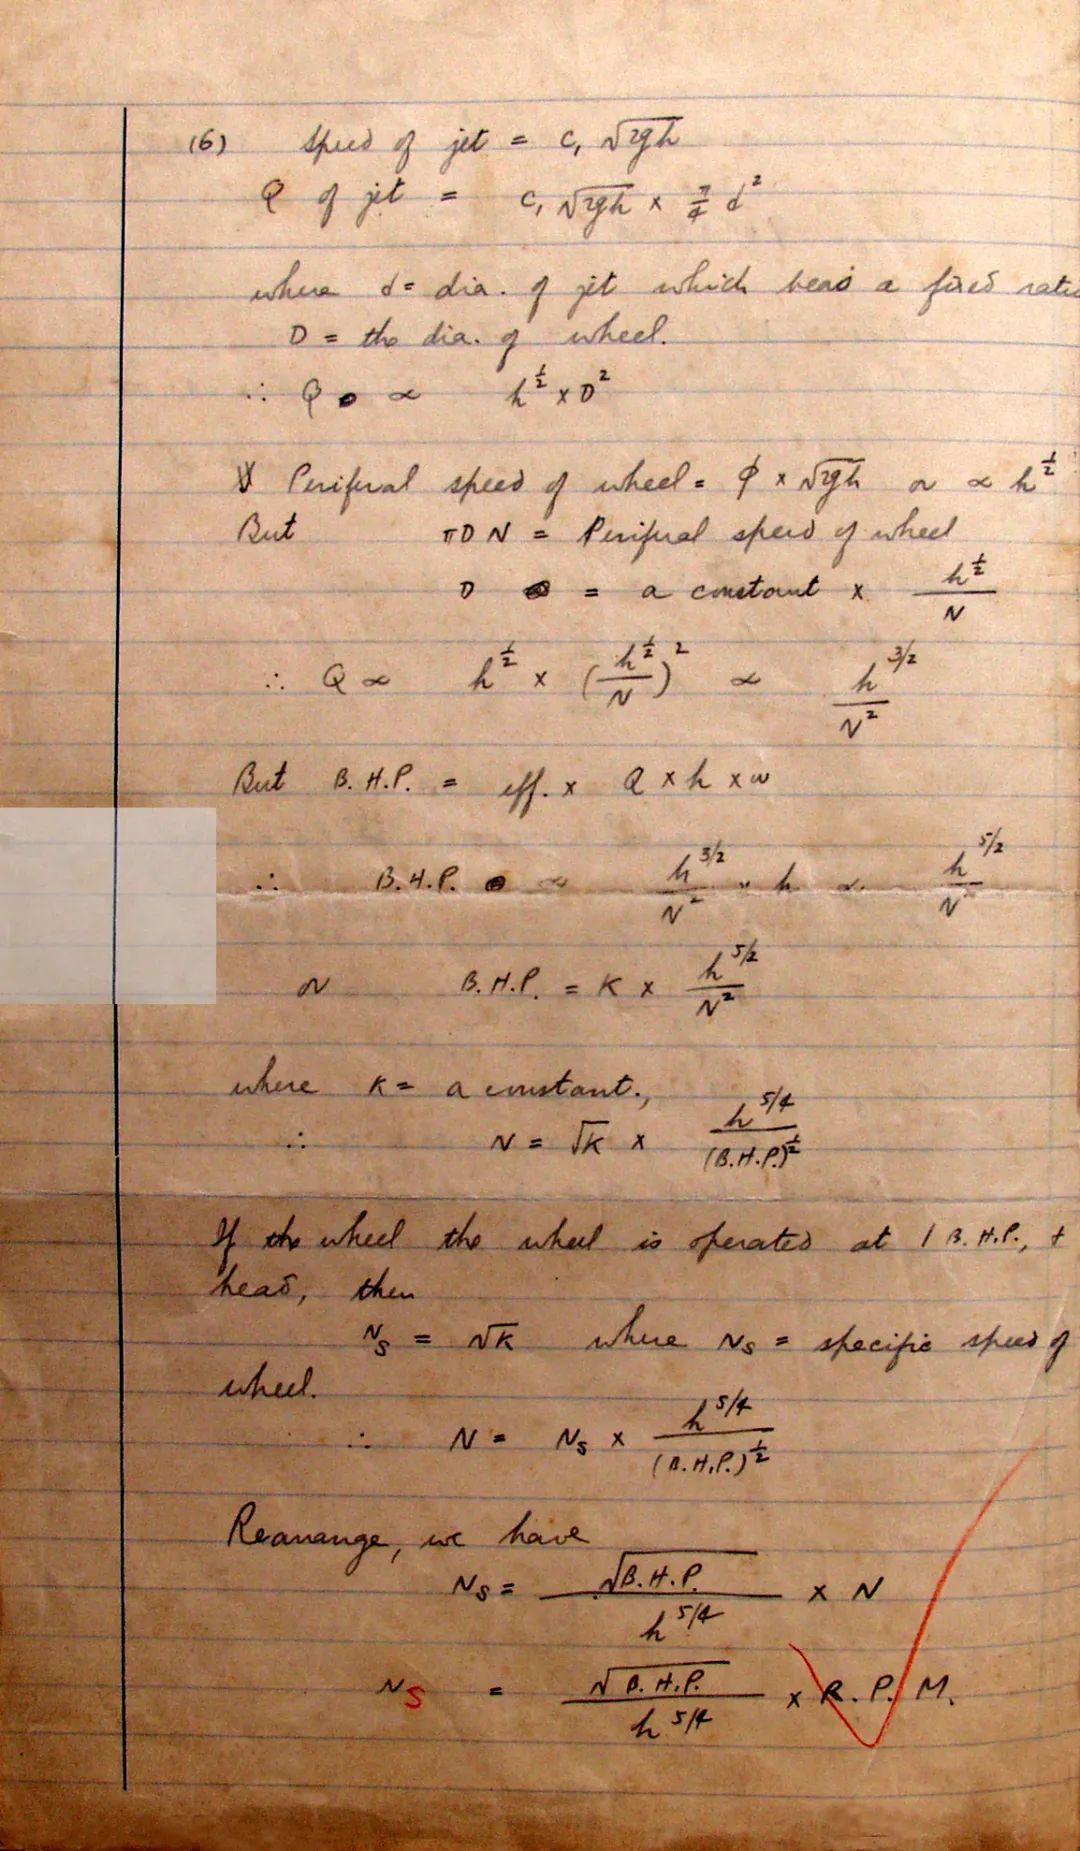 (6) Speed of jet = C₁ √2gh
Q of jet = C₁ √2gh × π/4 d²
where d = dia. of jet which bears a fixed ratio
D = the dia. of wheel.
∴ Q ∝ h^½ × D²
Periferal speed of wheel = φ × √2gh or ∝ h^½
But πDN = Periferal speed of wheel
D = a constant × h^½/N
∴ Q ∝ h^½ × (h^½/N)² ∝ h^3/2/N²
But B.H.P. = eff. × Q × h × w
∴ B.H.P. ∝ h^3/2/N² × h ∝ h^5/2/N²
or B.H.P. = K × h^5/2/N²
where K = a constant.,
∴ N = √K × h^5/4/(B.H.P.)^½
If the wheel the wheel is operated at 1 B.H.P.,
head, then
Ns = √K where Ns = specific speed of
wheel.
∴ N = Ns × h^5/4/(B.H.P.)^½
Rearange, we have
Ns = √B.H.P./h^5/4 × N
Ns = √B.H.P./h^5/4 × R.P.M.